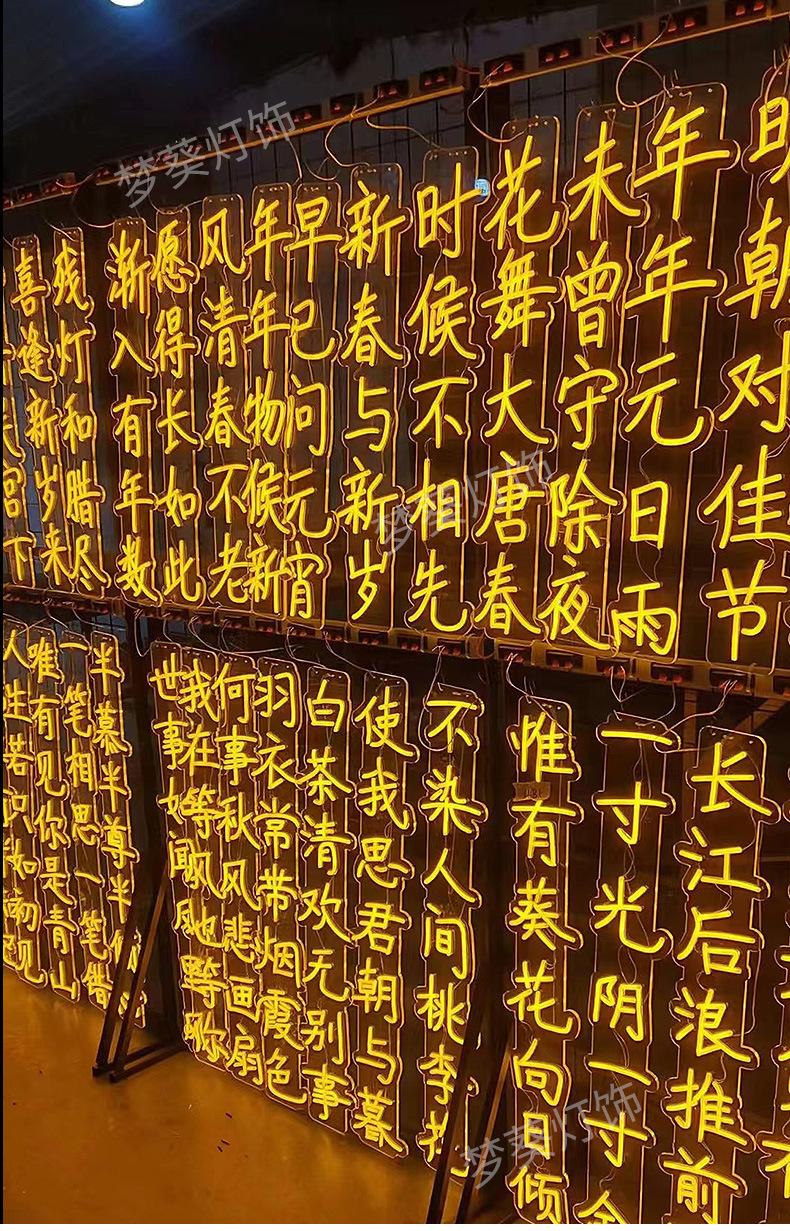 明朝对佳节
年年元日雨
未曾守除夜
花舞大唐春
时候不相先
新春与新岁
早已问元宵
年年物候新
风清春不老
愿得长如此
渐入有年数
残灯和腊尽
喜逢新岁来
宫下
长江后浪推前
一寸光阴一寸金
惟有葵花向日倾
不染人间桃李花
使我思君朝与暮
白茶清欢无别事
羽衣常带烟霞色
何事秋风悲画扇
我在等风也等你
世事如闻风
半慕半尊半
一笔相思一笔借
唯有见你是青山
人生若只如初见
梦葵灯饰
梦葵灯饰
梦葵灯饰